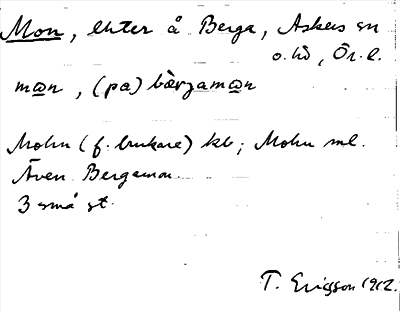 Mon, lhter å Berga, Askers sn
o. hd, Ör. l.
mo̲n, (pa) bærjamo̲n
Mohn (f. brukare) kb; Mohn ml.
Även Bergamon
3 små st.
T. Ericsson 1912.